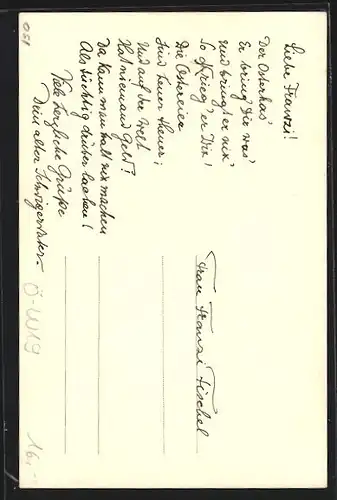 Liebe Franzi!
Der Osterhas'
Er bring' Dir was'
Und bringt er nix'
So krieg' er Dix!
Die Ostereier
Sind heuer teuer;
Und auf der Welt
Hat niemand Geld!
Da kann man halt nix machen
Als tüchtig drüber lachen!
Viele herzliche Grüße
Dein alter Schwiegervater.
Frau Franzi Fischel
051
Ö-W19
16,-